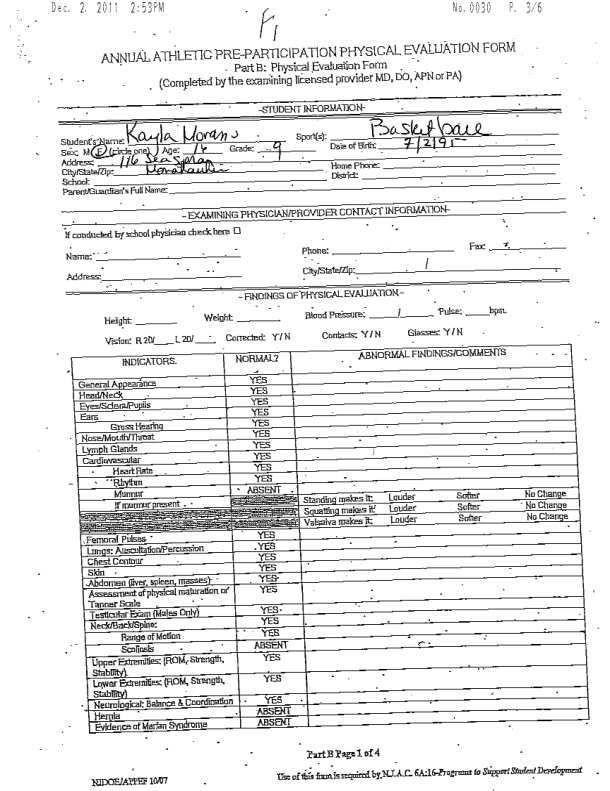 Dec. 2. 2011 2:53PM No. 0030 P. 3/6
ANNUAL ATHLETIC PRE-PARTICIPATION PHYSICAL EVALUATION FORM
Part B: Physical Evaluation Form
(Completed by the examining licensed provider MD, DO, APN or PA)
-STUDENT INFORMATION-
Student's Name: Kayla Morano Sport(s): Basketball
Sex: M F (circle one) Age: 16 Grade: 9 Date of Birth: 7/2/95
Address: 116 Sea Spray Home Phone:
City/State/Zip: Manahawkin District:
School:
Parent/Guardian's Full Name:
- EXAMINING PHYSICIAN/PROVIDER CONTACT INFORMATION-
If conducted by school physician check here ☐
Name: Phone: Fax:
Address: City/State/Zip:
- FINDINGS OF PHYSICAL EVALUATION -
Height: Weight: Blood Pressure: / Pulse: bpm.
Vision: R 20/ L 20/ Corrected: Y / N Contacts: Y / N Glasses: Y / N
INDICATORS NORMAL? ABNORMAL FINDINGS/COMMENTS
General Appearance YES
Head/Neck YES
Eyes/Sclera/Pupils YES
Ears YES
Gross Hearing YES
Nose/Mouth/Throat YES
Lymph Glands YES
Cardiovascular YES
Heart Rate YES
Rhythm YES
Murmur ABSENT
If murmur present Standing makes it: Louder Softer No Change
Squatting makes it: Louder Softer No Change
Valsalva makes it: Louder Softer No Change
Femoral Pulses YES
Lungs: Auscultation/Percussion YES
Chest Contour YES
Skin YES
Abdomen (liver, spleen, masses) YES
Assessment of physical maturation or YES
Tanner Scale
Testicular Exam (Males Only) YES
Neck/Back/Spine: YES
Range of Motion YES
Scoliosis ABSENT
Upper Extremities: (ROM, Strength, YES
Stability)
Lower Extremities: (ROM, Strength, YES
Stability)
Neurological: Balance & Coordination YES
Hernia ABSENT
Evidence of Marfan Syndrome ABSENT
Part B Page 1 of 4
NJDOE/APPEF 10/07 Use of this form is required by N.J.A.C. 6A:16-Programs to Support Student Development